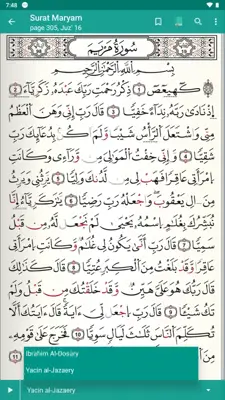 7:48
Surat Maryam
page 305, Juz' 16
سُورَةُ مَرْيَمَ
بِسْمِ اللَّهِ الرَّحْمَٰنِ الرَّحِيمِ
كٓهيعٓصٓ ١ ذِكْرُ رَحْمَتِ رَبِّكَ عَبْدَهُۥ زَكَرِيَّآ ٢
إِذْ نَادَىٰ رَبَّهُۥ نِدَآءً خَفِيًّا ٣ قَالَ رَبِّ إِنِّى وَهَنَ ٱلْعَظْمُ
مِنِّى وَٱشْتَعَلَ ٱلرَّأْسُ شَيْبًا وَلَمْ أَكُنۢ بِدُعَآئِكَ رَبِّ
شَقِيًّا ٤ وَإِنِّى خِفْتُ ٱلْمَوَٰلِىَ مِن وَرَآءِى وَكَانَتِ
ٱمْرَأَتِى عَاقِرًا فَهَبْ لِى مِن لَّدُنكَ وَلِيًّا ٥ يَرِثُنِى وَيَرِثُ
مِنْ ءَالِ يَعْقُوبَ وَٱجْعَلْهُ رَبِّ رَضِيًّا ٦ يَٰزَكَرِيَّآ إِنَّا
نُبَشِّرُكَ بِغُلَٰمٍ ٱسْمُهُۥ يَحْيَىٰ لَمْ نَجْعَل لَّهُۥ مِن قَبْلُ
سَمِيًّا ٧ قَالَ رَبِّ أَنَّىٰ يَكُونُ لِى غُلَٰمٌ وَكَانَتِ ٱمْرَأَتِى
عَاقِرًا وَقَدْ بَلَغْتُ مِنَ ٱلْكِبَرِ عِتِيًّا ٨ قَالَ كَذَٰلِكَ
قَالَ رَبُّكَ هُوَ عَلَىَّ هَيِّنٌ وَقَدْ خَلَقْتُكَ مِن قَبْلُ وَلَمْ
تَكُ شَيْـًٔا ٩ قَالَ رَبِّ ٱجْعَل لِّىٓ ءَايَةً قَالَ ءَايَتُكَ أَلَّا
تُكَلِّمَ ٱلنَّاسَ ثَلَٰثَ لَيَالٍ سَوِيًّا 10 فَخَرَجَ عَلَىٰ قَوْمِهِۦ
11
Ibrahim Al-Dosary
Yacin al-Jazaery
Yacin al-Jazaery